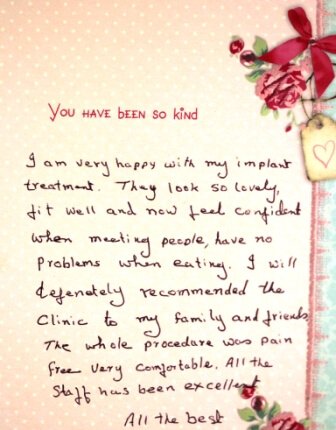 You have been so kind
I am very happy with my implant
treatment. They look so lovely,
fit well and now feel confident
when meeting people, have no
problems when eating. I will
defenetely recommended the
Clinic to my family and friends,
The whole procedure was pain
free very comfortable. All the
Staff has been excellent
All the best